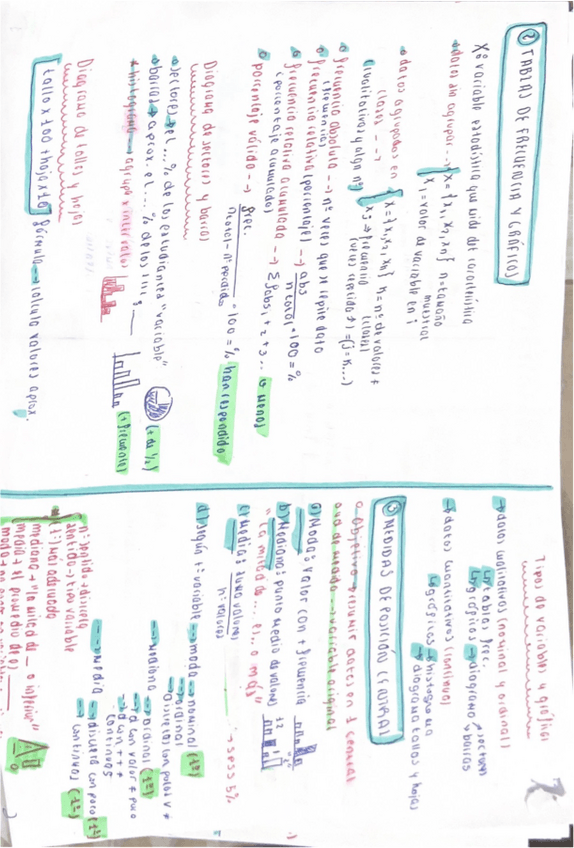 ② TABLAS DE FRECUENCIA Y GRÁFICOS
X = variable estadística que mide del característica
→ datos sin agrupar → { X = {x1, x2, xn} n = tamaño muestral
Xi = valor de variable en i
→ datos agrupados en clases → { X = {x1, x2, xn} n = nº de valores ≠
(cualitativos y algn nº)
→ frecuencia absoluta → nº veces que se repite dato
(frecuencia)
→ frecuencia relativa (porcentaje) → abs / n total · 100 = %
→ frecuencia relativa acumulada → Σ fabs 1 + 2 + 3... o menos
(porcentaje acumulado)
→ porcentaje válido → frec. / n total - nº perdidos · 100 = % han respondido
Diagrama de sectores y barras
→ sectores → el ... % de los estudiantes "variable" (+ de ½)
→ barras → aprox. el ... % de los
→ histograma → agrupa x intervalos (+ frecuente)
Diagrama de tallos y hojas
tallo x 100 + hoja x 10 fórmula → calcula valores aprox.
Tipos de variables y gráficos
→ datos cualitativos (nominal y ordinal)
↳ tablas frec.
↳ gráficos → diagrama sectores
barras
→ datos cuantitativos (continua)
↳ gráficos → histograma
→ diagrama tallos y hojas
③ MEDIDAS DE POSICIÓN CENTRAL
→ objetivo → resumir datos en 1 central
ud de medida → variable original
a) Moda: valor con + frecuencia
b) Mediana: punto medio de valores
"La mitad de ... es ... o más"
c) Media: suma valores / nº valores → SPSS 5%
d) según t. variable → moda → nominal (1ª)
→ ordinal
→ discretas con pocos v ≠
→ mediana → ordinal (1ª)
→ d con valor ≠ poco
→ d con +++
continuas
→ media → discreta con poco (1ª)
→ continuas (1ª)
n = sentido: discreta
sentido → tipo variable
(t:) más adecuada
mediana → "la mitad de __ o inferior"
media → el promedio de __